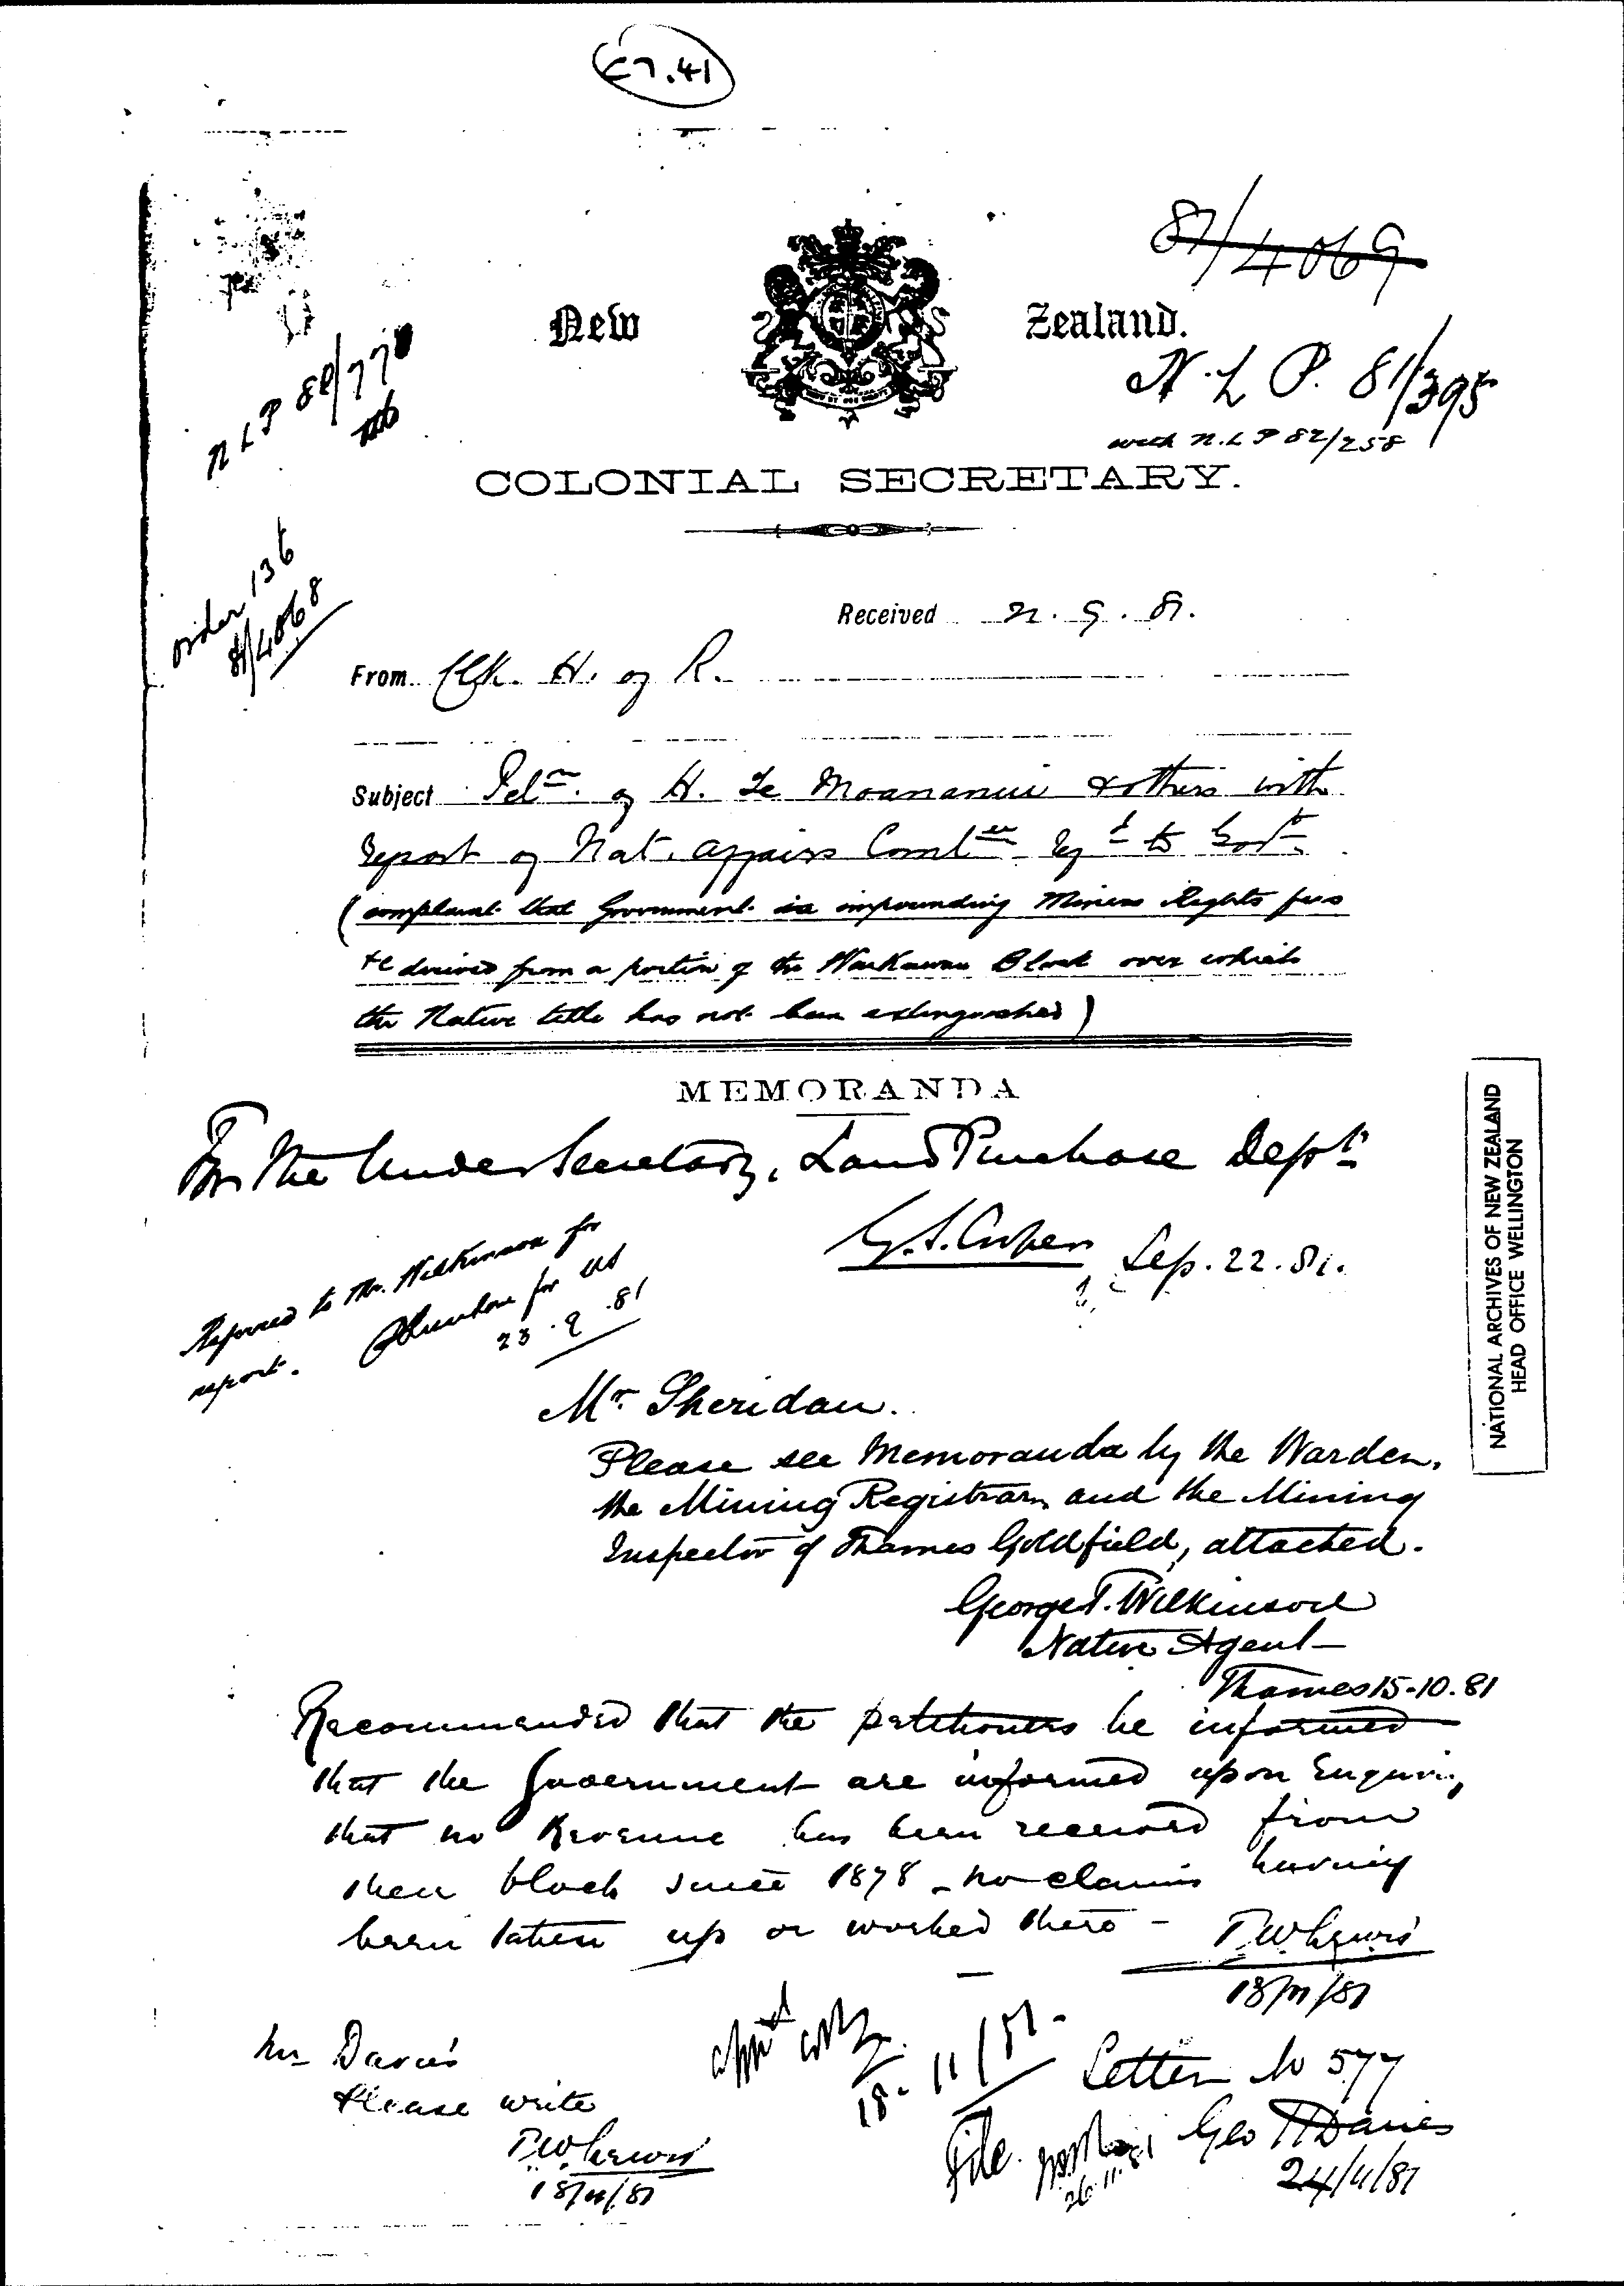 E7.41
81/4069
New Zealand.
N.L.P. 81/395
with N.L.P 82/258
COLONIAL SECRETARY.
order 136
81/4068
Received 22.9.81.
From Clk. H. of R.
Subject Petn. of H. Te Moananui & others with
report of Nat. Affairs Comtee
(complaint that Government is impounding Miners Rights fees
&c derived from a portion of the Waikawau Block over which
the Native title has not been extinguished)
MEMORANDA
The Under Secretary, Land Purchase Dept.
G.S. Cooper Sep. 22. 81.
Referred to Mr. Wilkinson for
report. for US
23.9.81
Mr. Sheridan.
Please see Memoranda by the Warden,
the Mining Registrar, and the Mining
Inspector of Thames Goldfield, attached.
George T. Wilkinson
Native Agent
Thames 15-10.81
Recommended that the petitioners be informed
that the Government are informed upon Enquiry
that no Revenue has been received from
their block since 1878 - no claims having
been taken up or worked there -
T.W. Lewis
18/11/81
Mr Davies
Please write
T.W. Lewis
18/11/81
18-11/81-
Letter No 577
Geo H Davies
24/11/81
File
26.11.81
NATIONAL ARCHIVES OF NEW ZEALAND
HEAD OFFICE WELLINGTON